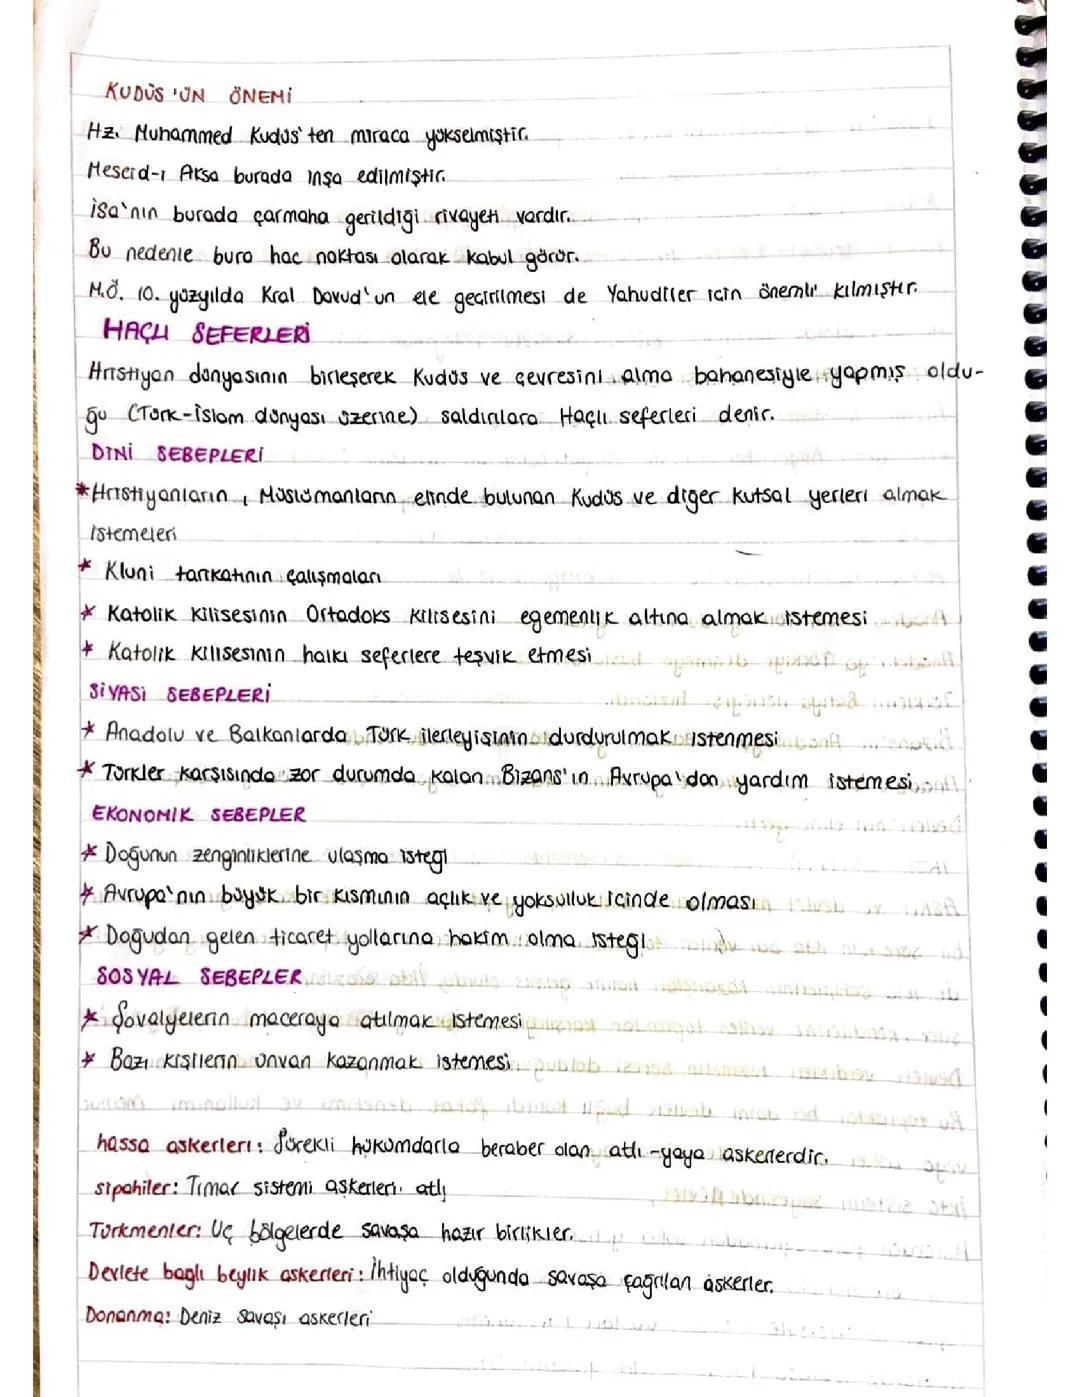 KUDÜS'ÜN ÖNEMİ
Hz. Muhammed Kudüs'ten miraca yükselmiştir.
Mescid-ı Aksa burada inşa edilmiştir.
İsa'nın burada çarmaha gerildiği rivayeti vardır.
Bu nedenle bura hac noktası olarak kabul görür.
M.Ö. 10. yüzyılda Kral Davud'un ele geçirilmesi de Yahudiler için önemli kılmıştır.
HAÇLI SEFERLERİ
Hristiyan dünyasının birleşerek Kudüs ve çevresini alma bahanesiyle yapmış oldu-
ğu (Türk-İslam dünyası üzerine) saldırılara Haçlı seferleri denir.
DİNİ SEBEPLERİ
*Hristiyanların, Müslümanların elinde bulunan Kudüs ve diğer kutsal yerleri almak
istemeleri
* Kluni tarikatının çalışmaları
* Katolik Kilisesinin Ortadoks Kilisesini egemenlik altına almak istemesi
* Katolik Kilisesinin halkı seferlere teşvik etmesi
SİYASİ SEBEPLERİ
* Anadolu ve Balkanlarda Türk ilerleyişinin durdurulmak istenmesi
* Türkler karşısında zor durumda kalan Bizans'ın Avrupa'dan yardım istemesi
EKONOMİK SEBEPLER
* Doğunun zenginliklerine ulaşma isteği
* Avrupa'nın büyük bir kısmının açlık ve yoksulluk içinde olması
* Doğudan gelen ticaret yollarına hakim olma isteği
SOSYAL SEBEPLER
* Şovalyelerin maceraya atılmak istemesi
* Bazı kişilerin ünvan kazanmak istemesi.
hassa askerleri: Sürekli hükümdarla beraber olan atlı-yaya askerlerdir.
sipahiler: Tımar sistemi askerleri. atlı
Türkmenler: Uç bölgelerde savaşa hazır birlikler.
Devlete bağlı beylik askerleri: İhtiyaç olduğunda savaşa çağrılan askerler.
Donanma: Deniz savaşı askerleri